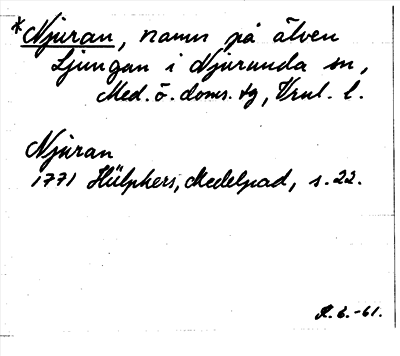 *Njuran, namn på älven
Ljungan i Njurunda sn,
Med. ö. doms. tg, Vnul. l.
Njuran
1771 Hülphers, Medelpad, s. 22.
R. E. -61.